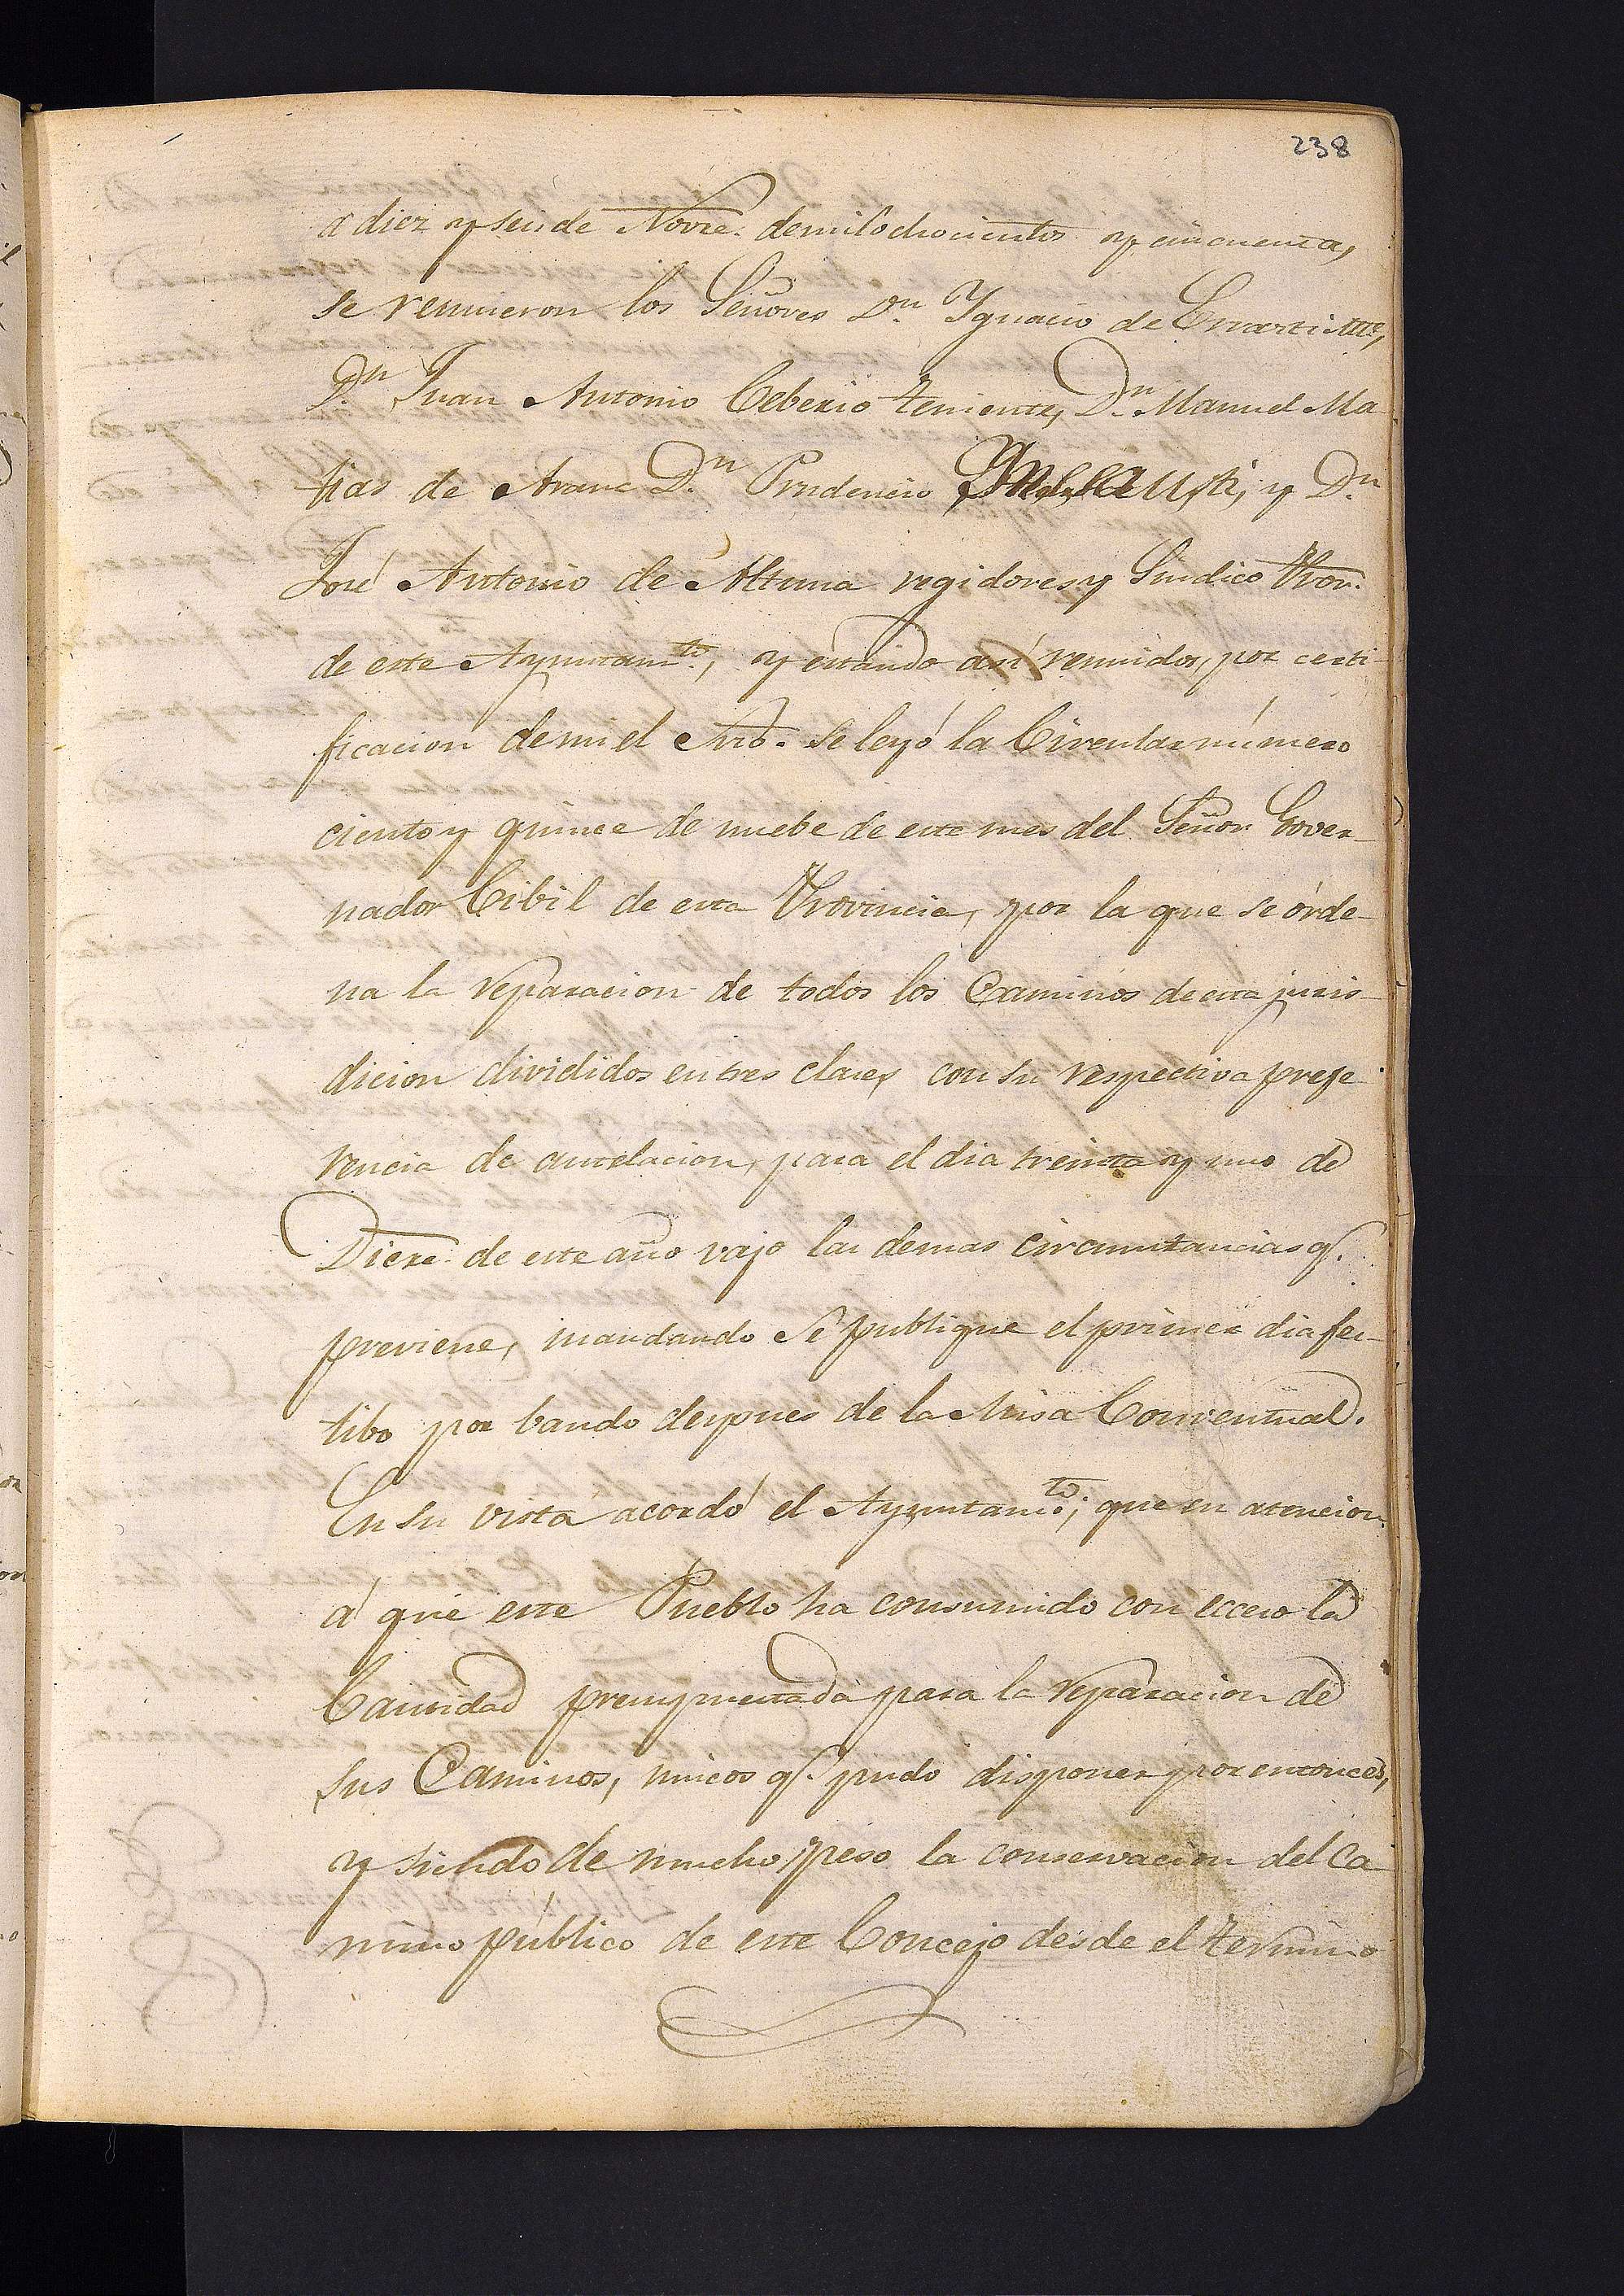 238
a diez y seis de Novre. de mil ochocientos y cincuenta,
se reunieron los Señores Dn. Ygnacio de Errarti Alle,
Dn. Juan Antonio Ceberio teniente, Dn. Manuel Ma
tias de Arana Dn. Prudencio Ynchausti, y Dn.
José Antonio de Altuna regidores y Sindico Pror.
de este Ayuntamto., y estando así reunidos, por certi-
ficacion de mi el Srio. se leyó la Circular número
ciento y quince de nuebe de este mes del Señor Gover-
nador Cibil de esta Provincia, por la que se órde-
na la reparacion de todos los Caminos de esta juris-
dicion divididos en tres clases con su respectiva prefe-
rencia de antelacion, para el dia treinta y uno de
Dicre. de este año vajo las demas circumstancias q.
previene, mandando se publique el primer dia fes-
tibo por bando despues de la Misa Conventual.
En su vista acordó el Ayuntamto.; que en atencion
á que este Pueblo ha consumido con ecceso la
Cantidad presupuestada para la reparacion de
sus Caminos, unicos q. pudo disponer por entonces,
y siendo de mucho peso la conservacion del Ca
mino público de este Concejo desde el termino